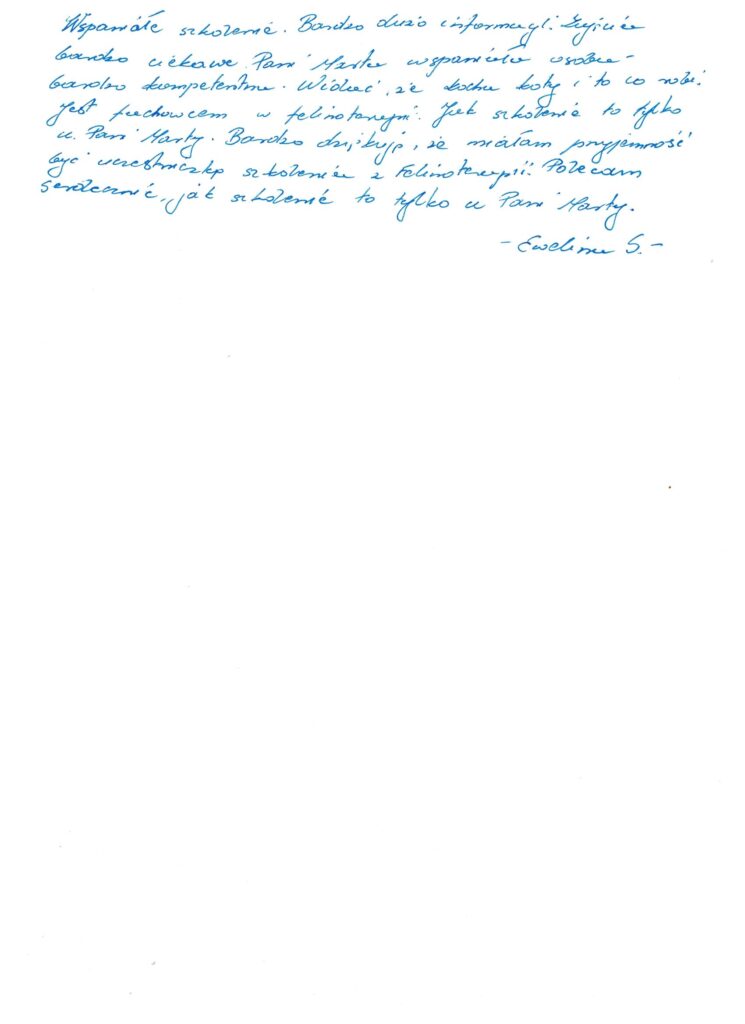 Wspaniałe szkolenie. Bardzo dużo informacji. Zajęcia
bardzo ciekawe. Pani Marta wspaniała osoba -
bardzo kompetentna. Widać, że kocha koty i to co robi.
Jest fachowcem w felinoterapii. Jak szkolenie to tylko
u Pani Marty. Bardzo dziękuję, że miałam przyjemność
być uczestniczką szkolenia z Felinoterapii. Polecam
serdecznie, jak szkolenie to tylko u Pani Marty.
- Ewelina S. -